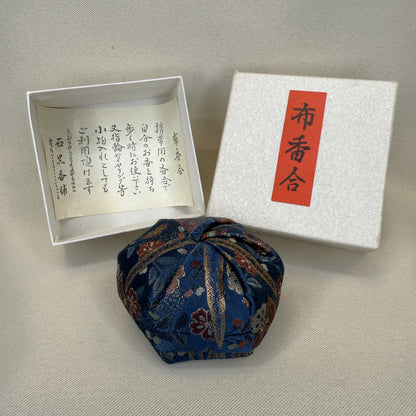 布香合
携帯用の香合で
自分のお香を持ち
歩く時にお使い下さい
又指輪やイヤリング等
小物入れとしても
ご利用頂けます
石黒香舗
布香合